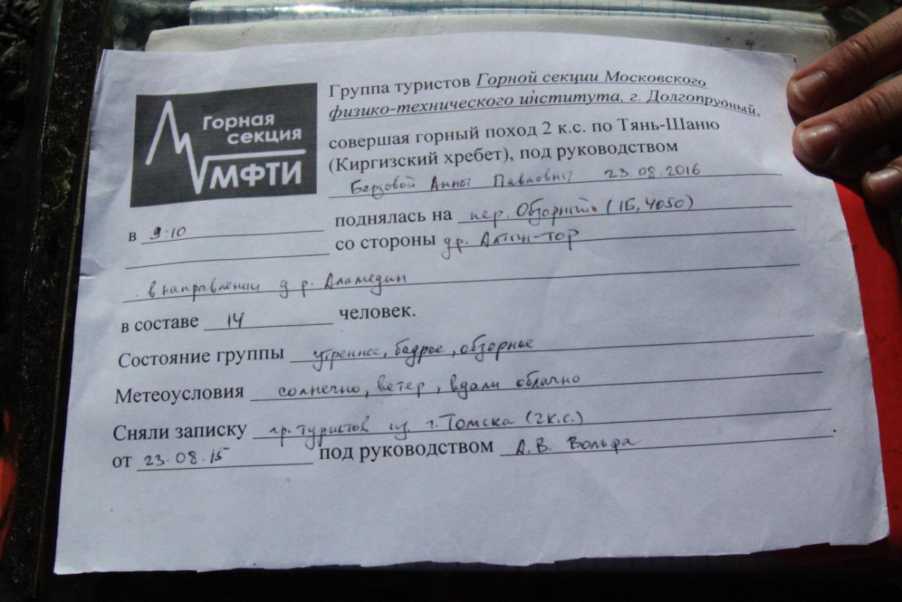 Горная
секция
МФТИ
Группа туристов Горной секции Московского
физико-технического института, г. Долгопрудный,
совершая горный поход 2 к.с. по Тянь-Шаню
(Киргизский хребет), под руководством
Берзовой Анны Павловны 23.08.2016
в 9.10 поднялась на пер. Обзорный (1Б, 4050)
со стороны др. Алтын-тор
в направлении д р. Аламедин
в составе 14 человек.
Состояние группы утреннее, бодрое, обзорное
Метеоусловия солнечно, ветер, вдали облачно
Сняли записку гр. туристов из г. Томска (2к.с.)
от 23.08.15 под руководством А.В. Вольфа.